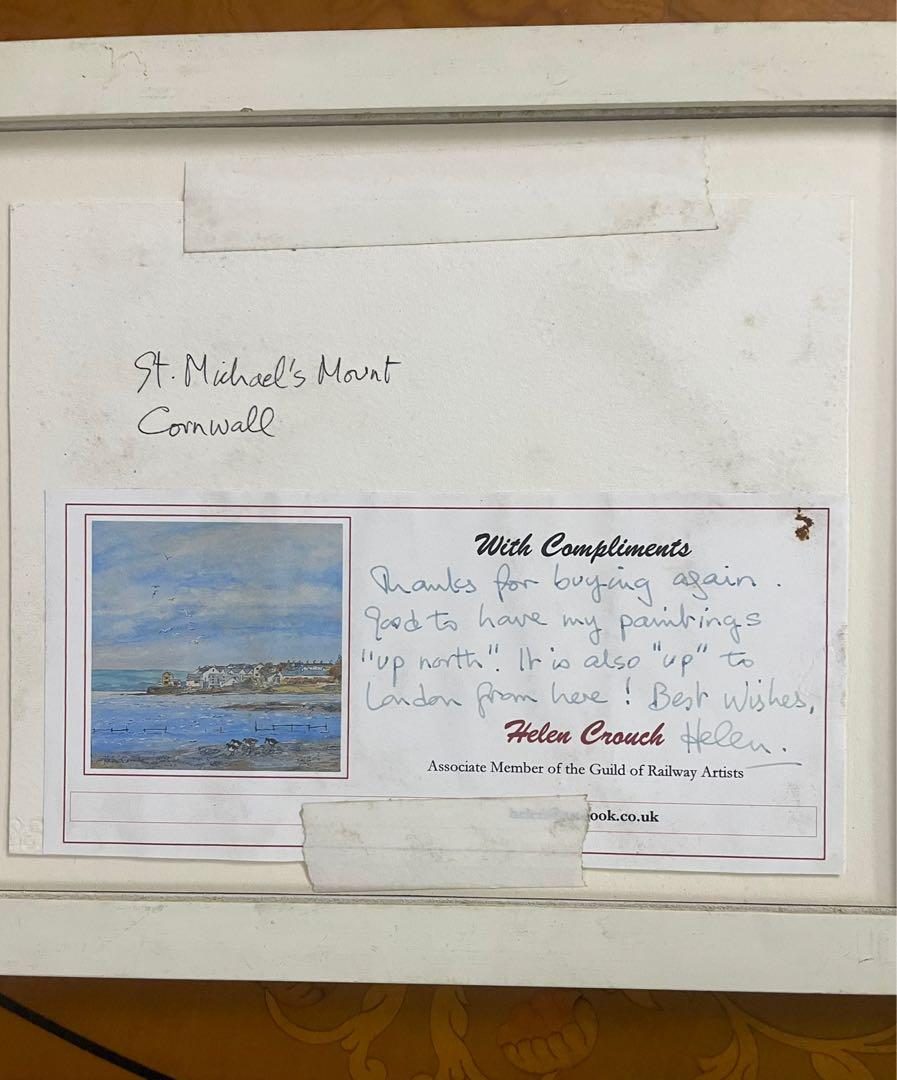 St. Michael's Mount
Cornwall
With Compliments
Thanks for buying again.
Good to have my paintings
"up north". It is also "up" to
London from here! Best Wishes,
Helen Crouch Helen.
Associate Member of the Guild of Railway Artists
ook.co.uk